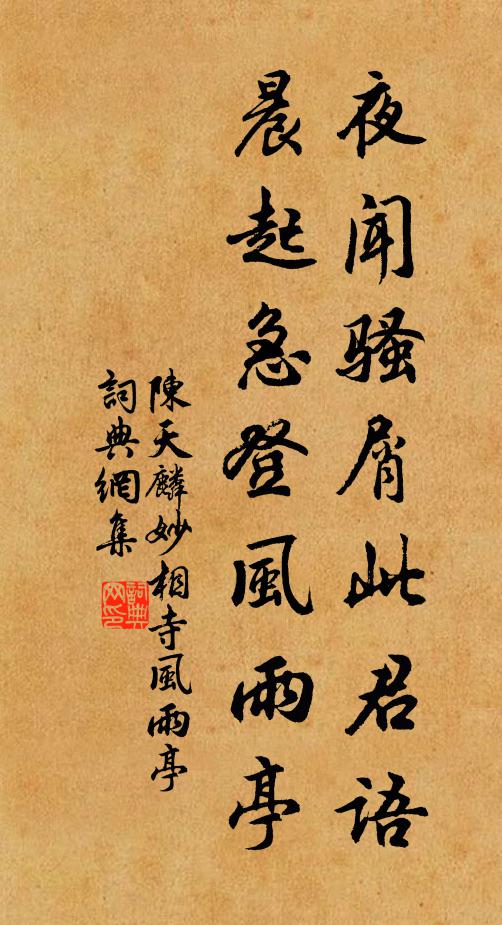 夜聞騷屑此君語
晨起急登風雨亭
陳天麟妙相寺風雨亭
詞典網集
詞典
网印